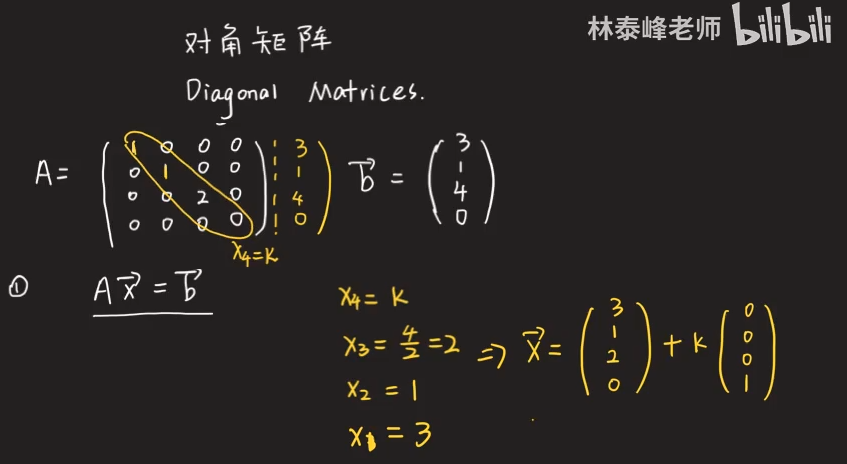 林泰峰老师 bilibili
对角矩阵
Diagonal Matrices.
A= ( 1 0 0 0 ¦ 3 ) b⃗ = ( 3 )
( 0 1 0 0 ¦ 1 ) ( 1 )
( 0 0 2 0 ¦ 4 ) ( 4 )
( 0 0 0 0 ¦ 0 ) ( 0 )
x₄=k
① Ax⃗ = b⃗
x₄ = k
x₃ = 4/2 = 2 ⇒ x⃗ = (3 1 2 0) + k (0 0 0 1)
x₂ = 1
x₁ = 3